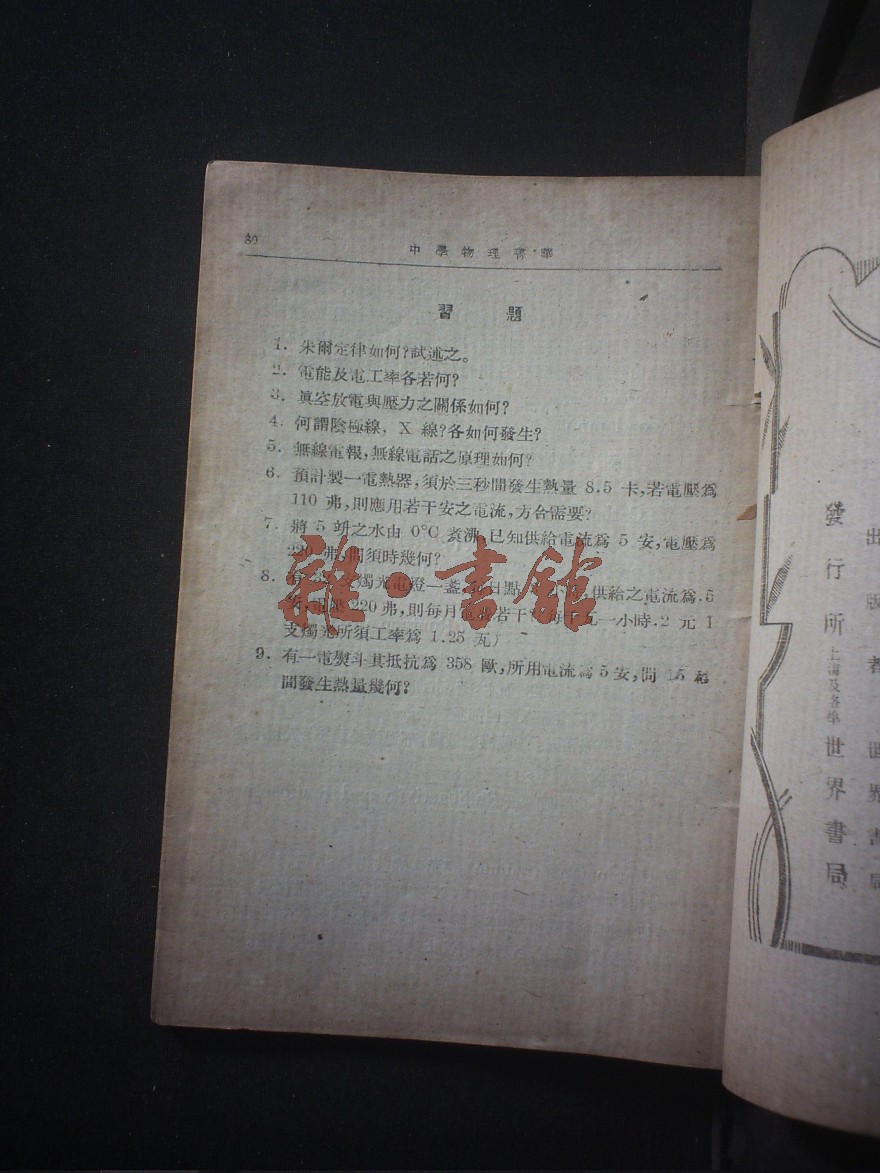 80
中學物理菁華
習題
1. 朱爾定律如何?試述之。
2. 電能及電工率各若何?
3. 眞空放電與壓力之關係如何?
4. 何謂陰極線,X 線?各如何發生?
5. 無線電報,無線電話之原理如何?
6. 預計製一電熱器,須於三秒間發生熱量 8.5 卡,若電壓爲
110 弗,則應用若干安之電流,方合需要?
7. 將 5 之水由 0°C 煑沸,已知供給電流爲 5 安,電壓爲
220 弗,問須時幾何?
8. 燭光電燈一盞,日點 供給之電流爲.5
220 弗,則每月電費若干 一小時.2 元 1
支燭光所須工率爲 1.25 瓦)
9. 有一電熨斗其抵抗爲 358 歐,所用電流爲 5 安,問 15
間發生熱量幾何?
雜·書館
出版者 世界書局
發行所 上海及各 世界書局